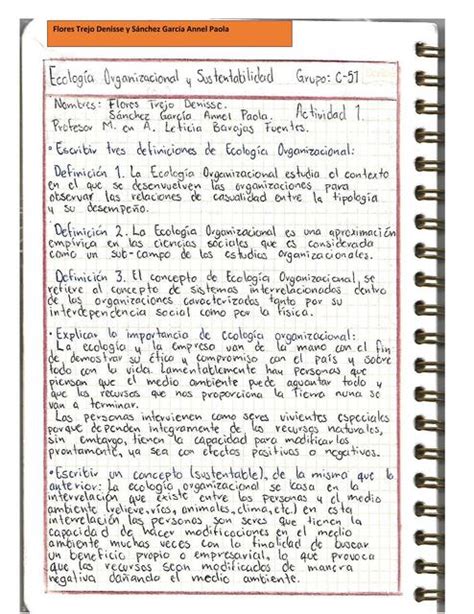 Flores Trejo Denisse y Sánchez García Annel Paola
Ecología Organizacional y Sustentabilidad Grupo: C-51
Nombres: Flores Trejo Denisse.
Sánchez García Annel Paola. Actividad 1
Profesor M. en A. Leticia Barajas Fuentes.
• Escribir tres definiciones de Ecología Organizacional:
Definición 1. La Ecología Organizacional estudia el contexto
en el que se desenvuelven las organizaciones para
observar las relaciones de casualidad entre la tipología
y su desempeño.
Definición 2. La Ecología Organizacional es una aproximación
empírica en las ciencias sociales que es considerada
como un sub-campo de los estudios organizacionales.
Definición 3. El concepto de Ecología Organizacional, se
refiere al concepto de sistemas interrelacionados dentro
de las organizaciones caracterizados tanto por su
interdependencia social como por la física.
• Explicar la importancia de ecología organizacional:
La ecología y la empresa van de la mano con el fin
de demostrar su ética y compromiso con el país y sobre
todo con la vida. Lamentablemente hay personas que
piensan que el medio ambiente puede aguantar todo y
que los recursos que nos proporciona la Tierra nunca se
van a terminar.
Las personas intervienen como seres vivientes especiales
porque dependen íntegramente de los recursos naturales,
sin embargo, tienen la capacidad para modificarlos
prontamente, ya sea con efectos positivos o negativos.
• Escribir un concepto (sustentable), de la misma que lo
anterior: La ecología organizacional se basa en la
interrelación que existe entre las personas y el medio
ambiente (relieve, ríos, animales, clima, etc.) en esta
interrelación las personas son seres que tienen la
capacidad de hacer modificaciones en el medio
ambiente muchas veces con la finalidad de buscar
un beneficio propio o empresarial, lo que provoca
que los recursos sean modificados de manera
negativa dañando el medio ambiente.